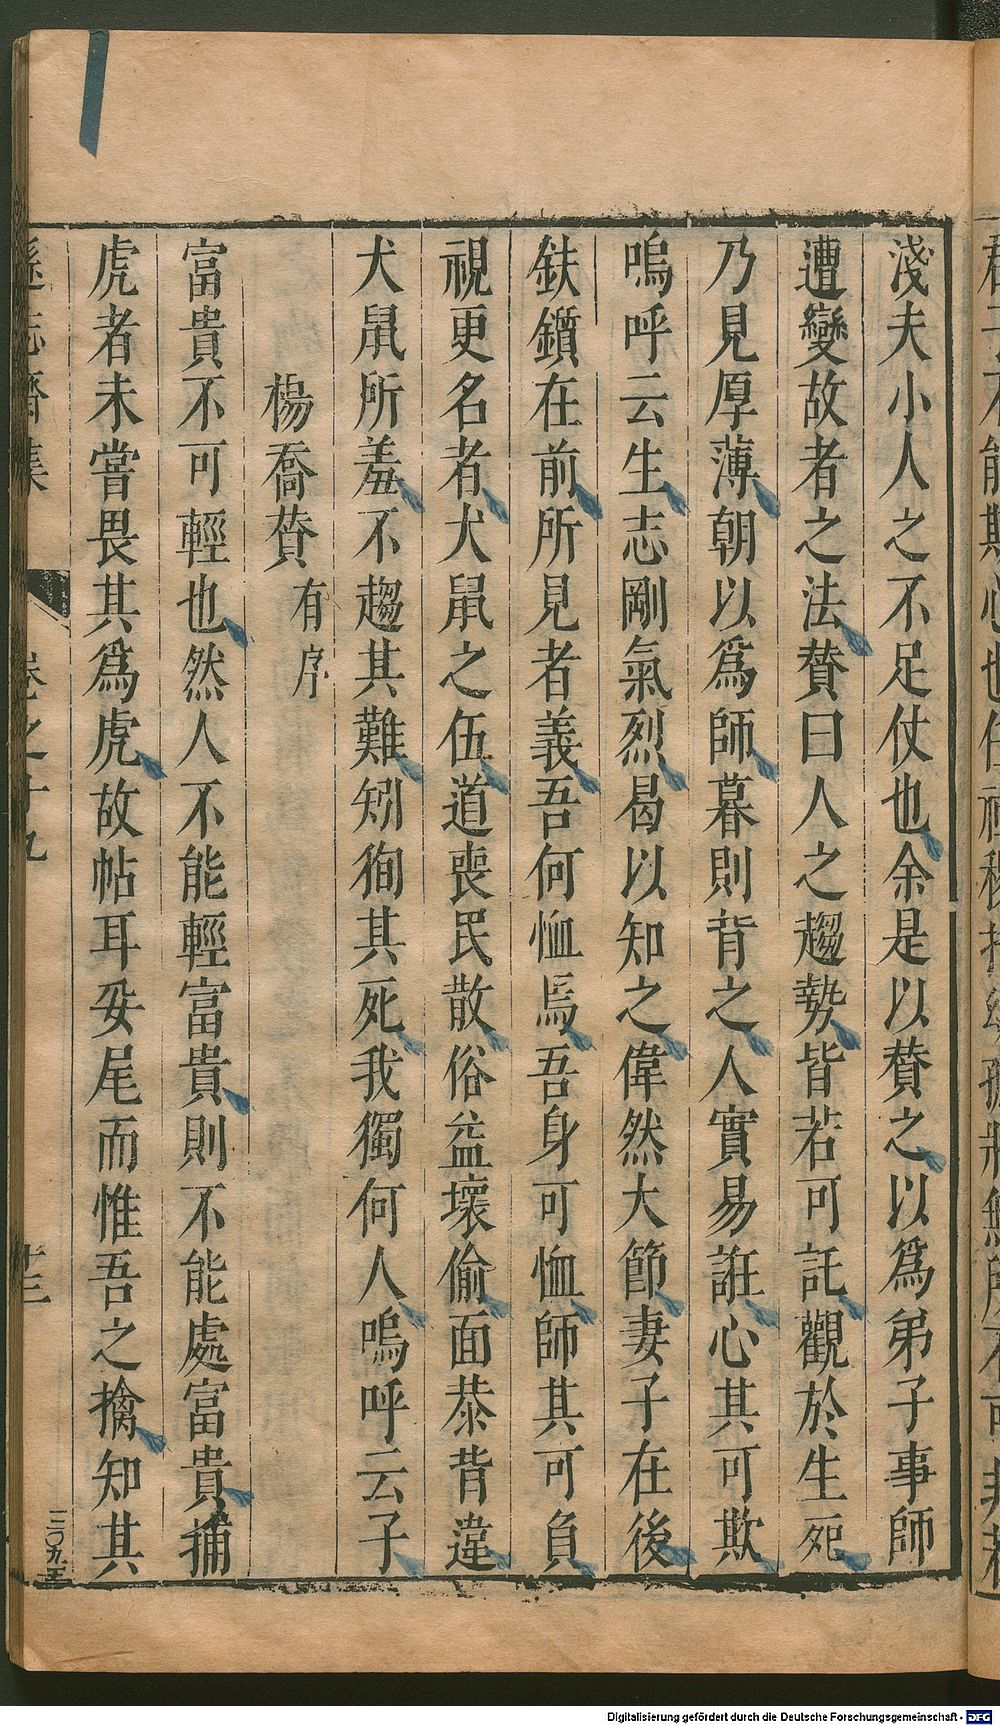 淺夫小人之不足仗也余是以贊之以爲弟子事師
遭變故者之法贊曰人之趨勢皆若可託觀於生死
乃見厚薄朝以爲師暮則背之人實易誑心其可欺
嗚呼云生志剛氣烈曷以知之偉然大節妻子在後
鈇鑕在前所見者義吾何恤焉吾身可恤師其可負
視更名者犬鼠之伍道喪民散俗益壞偷面恭背違
犬鼠所羞不趨其難矧徇其死我獨何人嗚呼云子
楊喬贊 有序
富貴不可輕也然人不能輕富貴則不能處富貴捕
虎者未嘗畏其爲虎故帖耳妥尾而惟吾之擒知其
遜志齋集 卷之十九 廿三
Digitalisierung gefördert durch die Deutsche Forschungsgemeinschaft - DFG